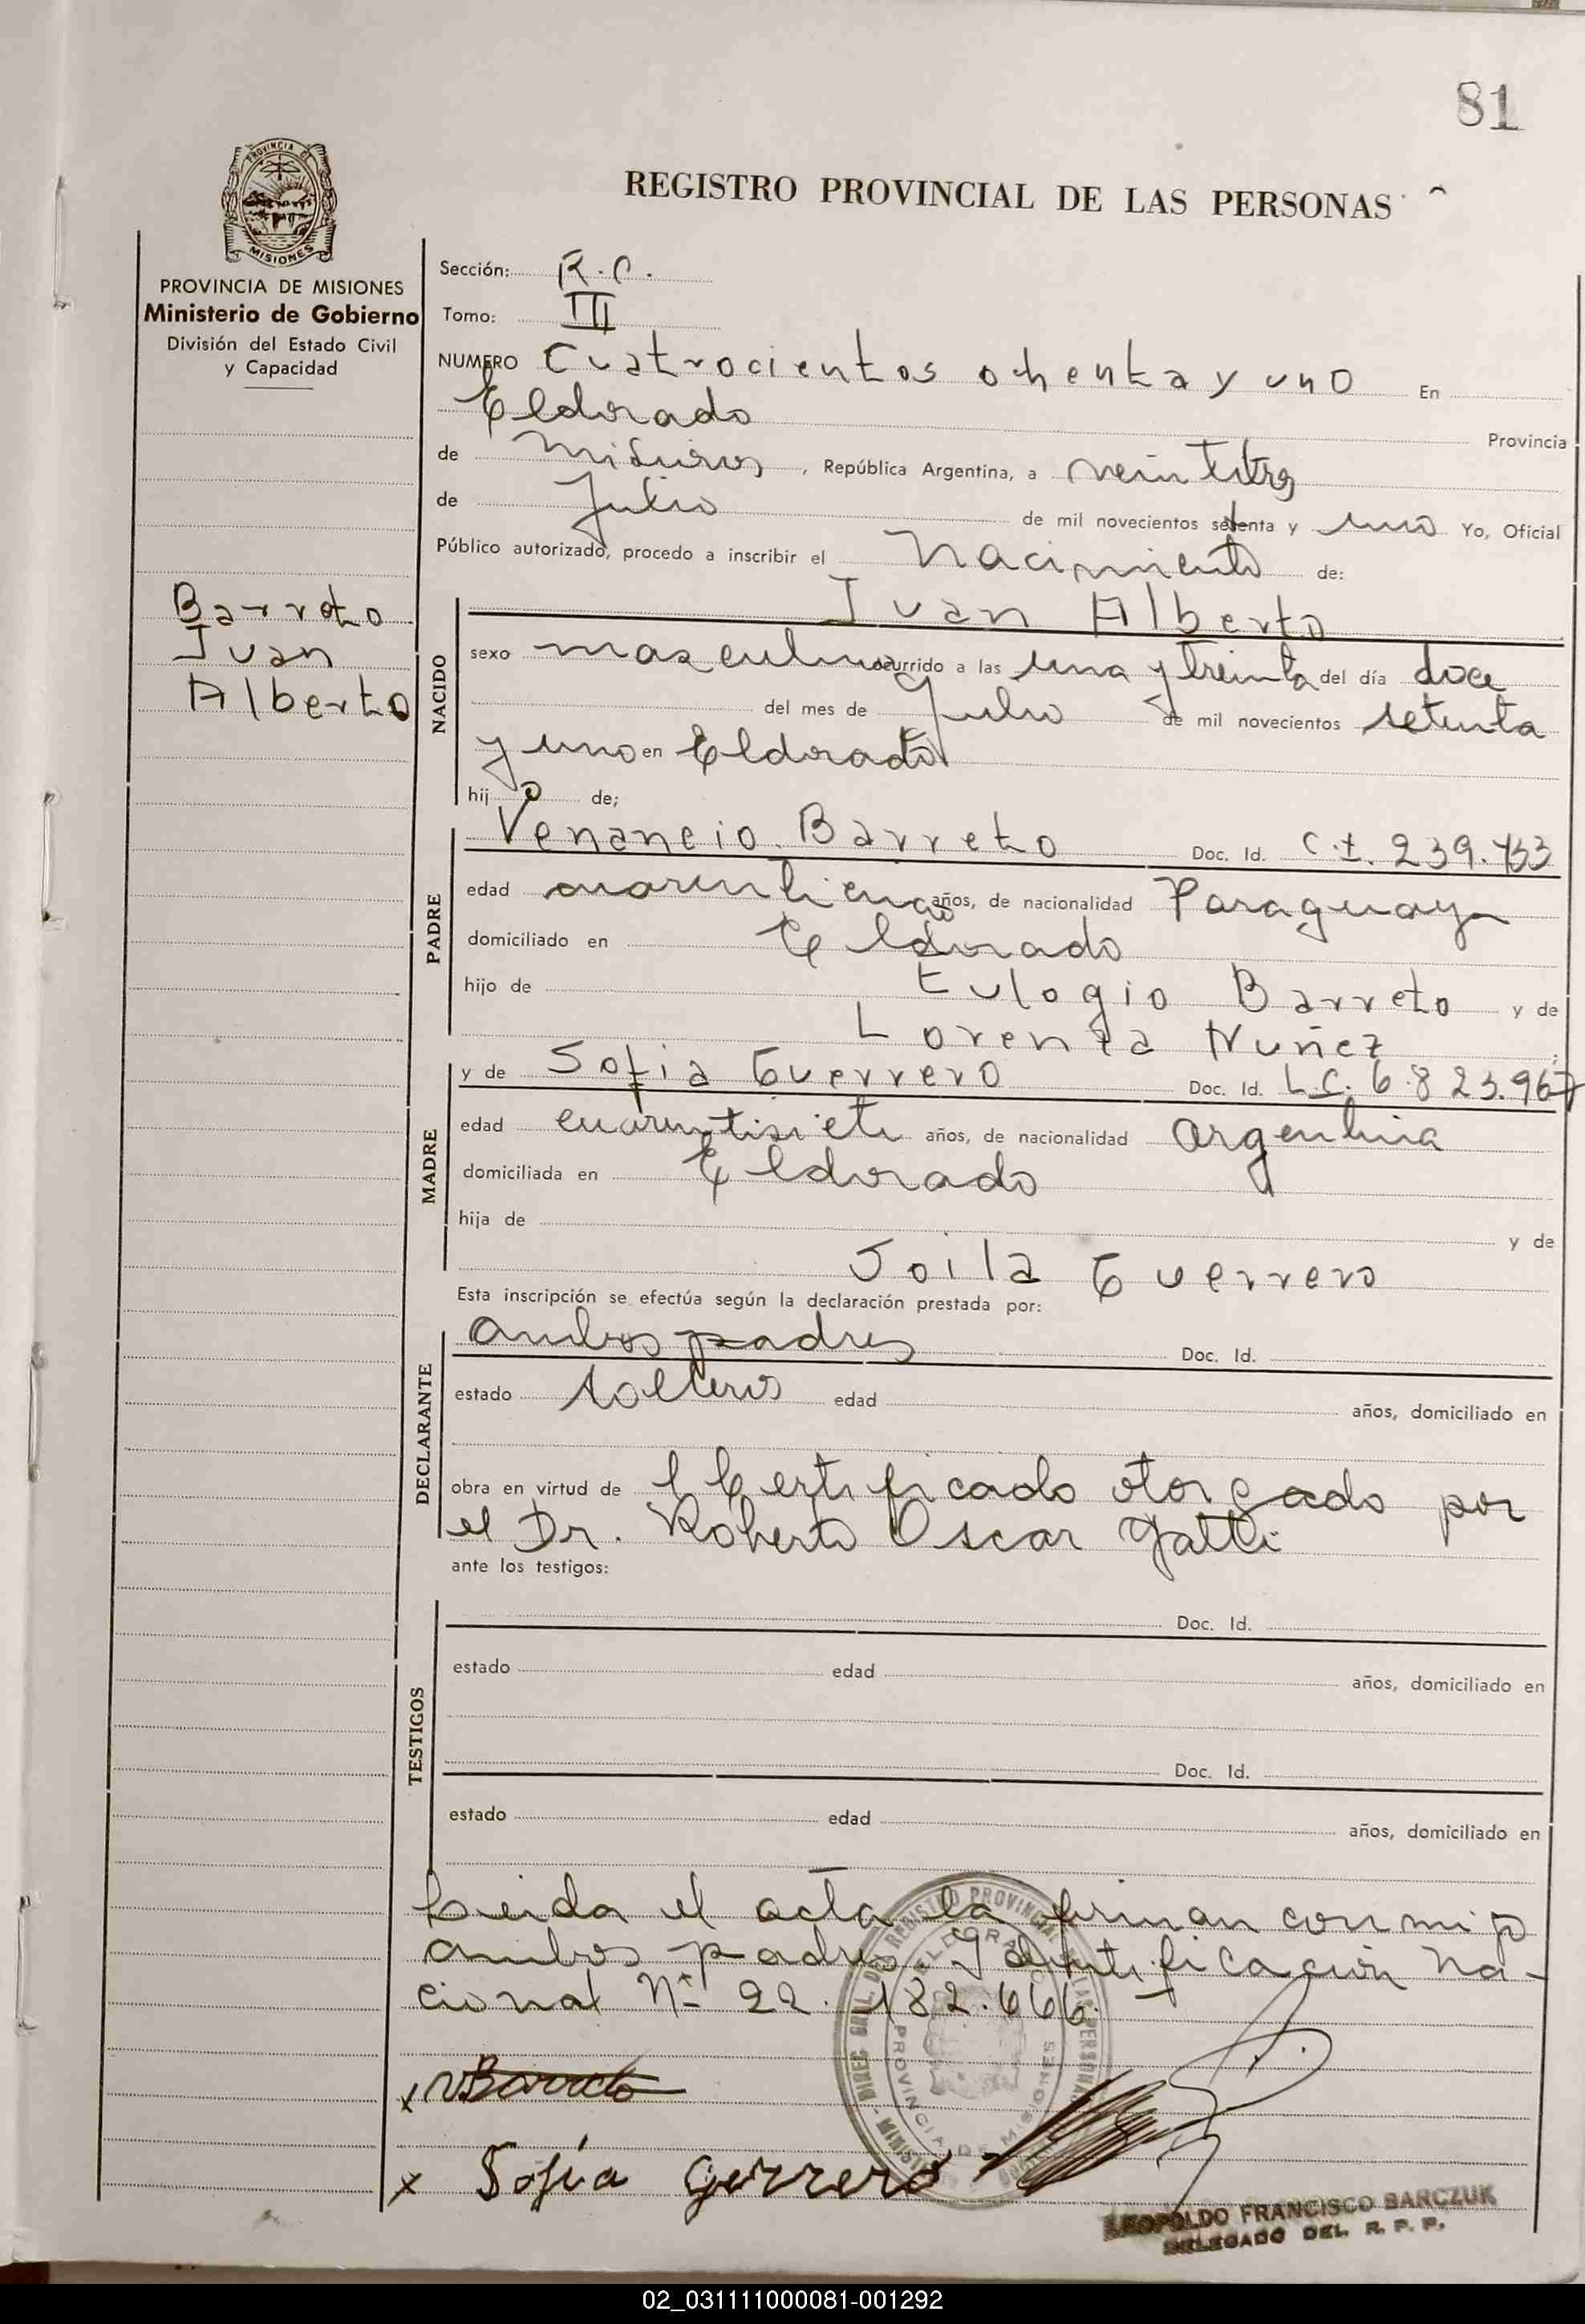 81
REGISTRO PROVINCIAL DE LAS PERSONAS
PROVINCIA DE MISIONES
Ministerio de Gobierno
División del Estado Civil
y Capacidad
Barreto
Juan
Alberto
Sección: R.C.
Tomo: III
NUMERO Cuatrocientos ochenta y uno En
Eldorado Provincia
de Misiones, República Argentina, a veintitres
de Julio de mil novecientos setenta y uno Yo, Oficial
Público autorizado, procedo a inscribir el Nacimiento de:
Juan Alberto
NACIDO
sexo masculino ocurrido a las una y treinta del día doce
del mes de Julio de mil novecientos setenta
y uno en Eldorado
hij o de;
PADRE
Venancio Barreto Doc. Id. C.I. 239.433
edad cuarentiuno años, de nacionalidad Paraguaya
domiciliado en Eldorado
hijo de Eulogio Barreto y de
Lorenza Nuñez
MADRE
y de Sofia Guerrero Doc. Id. L.C. 6.823.967
edad cuarentisiete años, de nacionalidad argentina
domiciliada en Eldorado
hija de y de
Joila Guerrero
Esta inscripción se efectúa según la declaración prestada por:
DECLARANTE
ambos padres Doc. Id.
estado solteros edad años, domiciliado en
obra en virtud de l Certificado otorgado por
el Dr. Roberto Oscar Gatti
ante los testigos:
TESTIGOS
Doc. Id.
estado edad años, domiciliado en
Doc. Id.
estado edad años, domiciliado en
Leida el acta la firman conmigo
ambos padres. Identificación Na-
cional Nº 22.182.666.
x V Barreto
x Sofia Gerrero
LEOPOLDO FRANCISCO BARCZUK
DELEGADO DEL R. P. P.
02_031111000081-001292